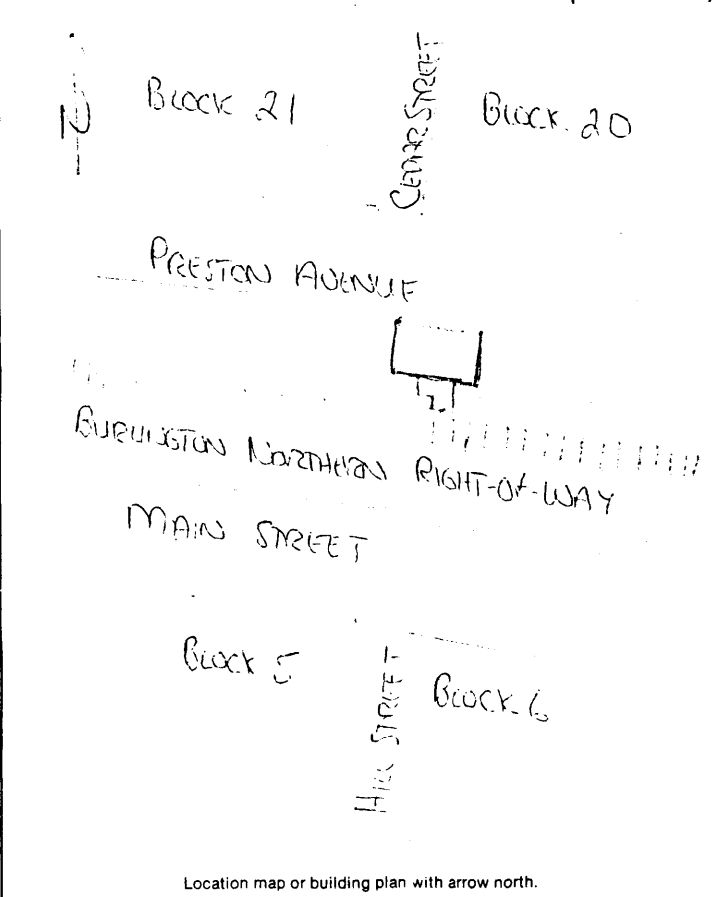 N
BLOCK 21
CEDAR STREET
BLOCK 20
PRESTON AVENUE
BURLINGTON NORTHERN RIGHT-OF-WAY
MAIN STREET
BLOCK 5
HILL STREET
BLOCK 6
Location map or building plan with arrow north.